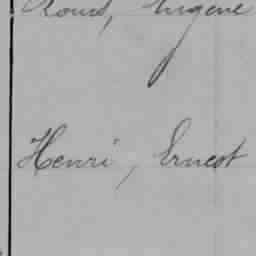 Louis, Eugène
Henri, Ernest